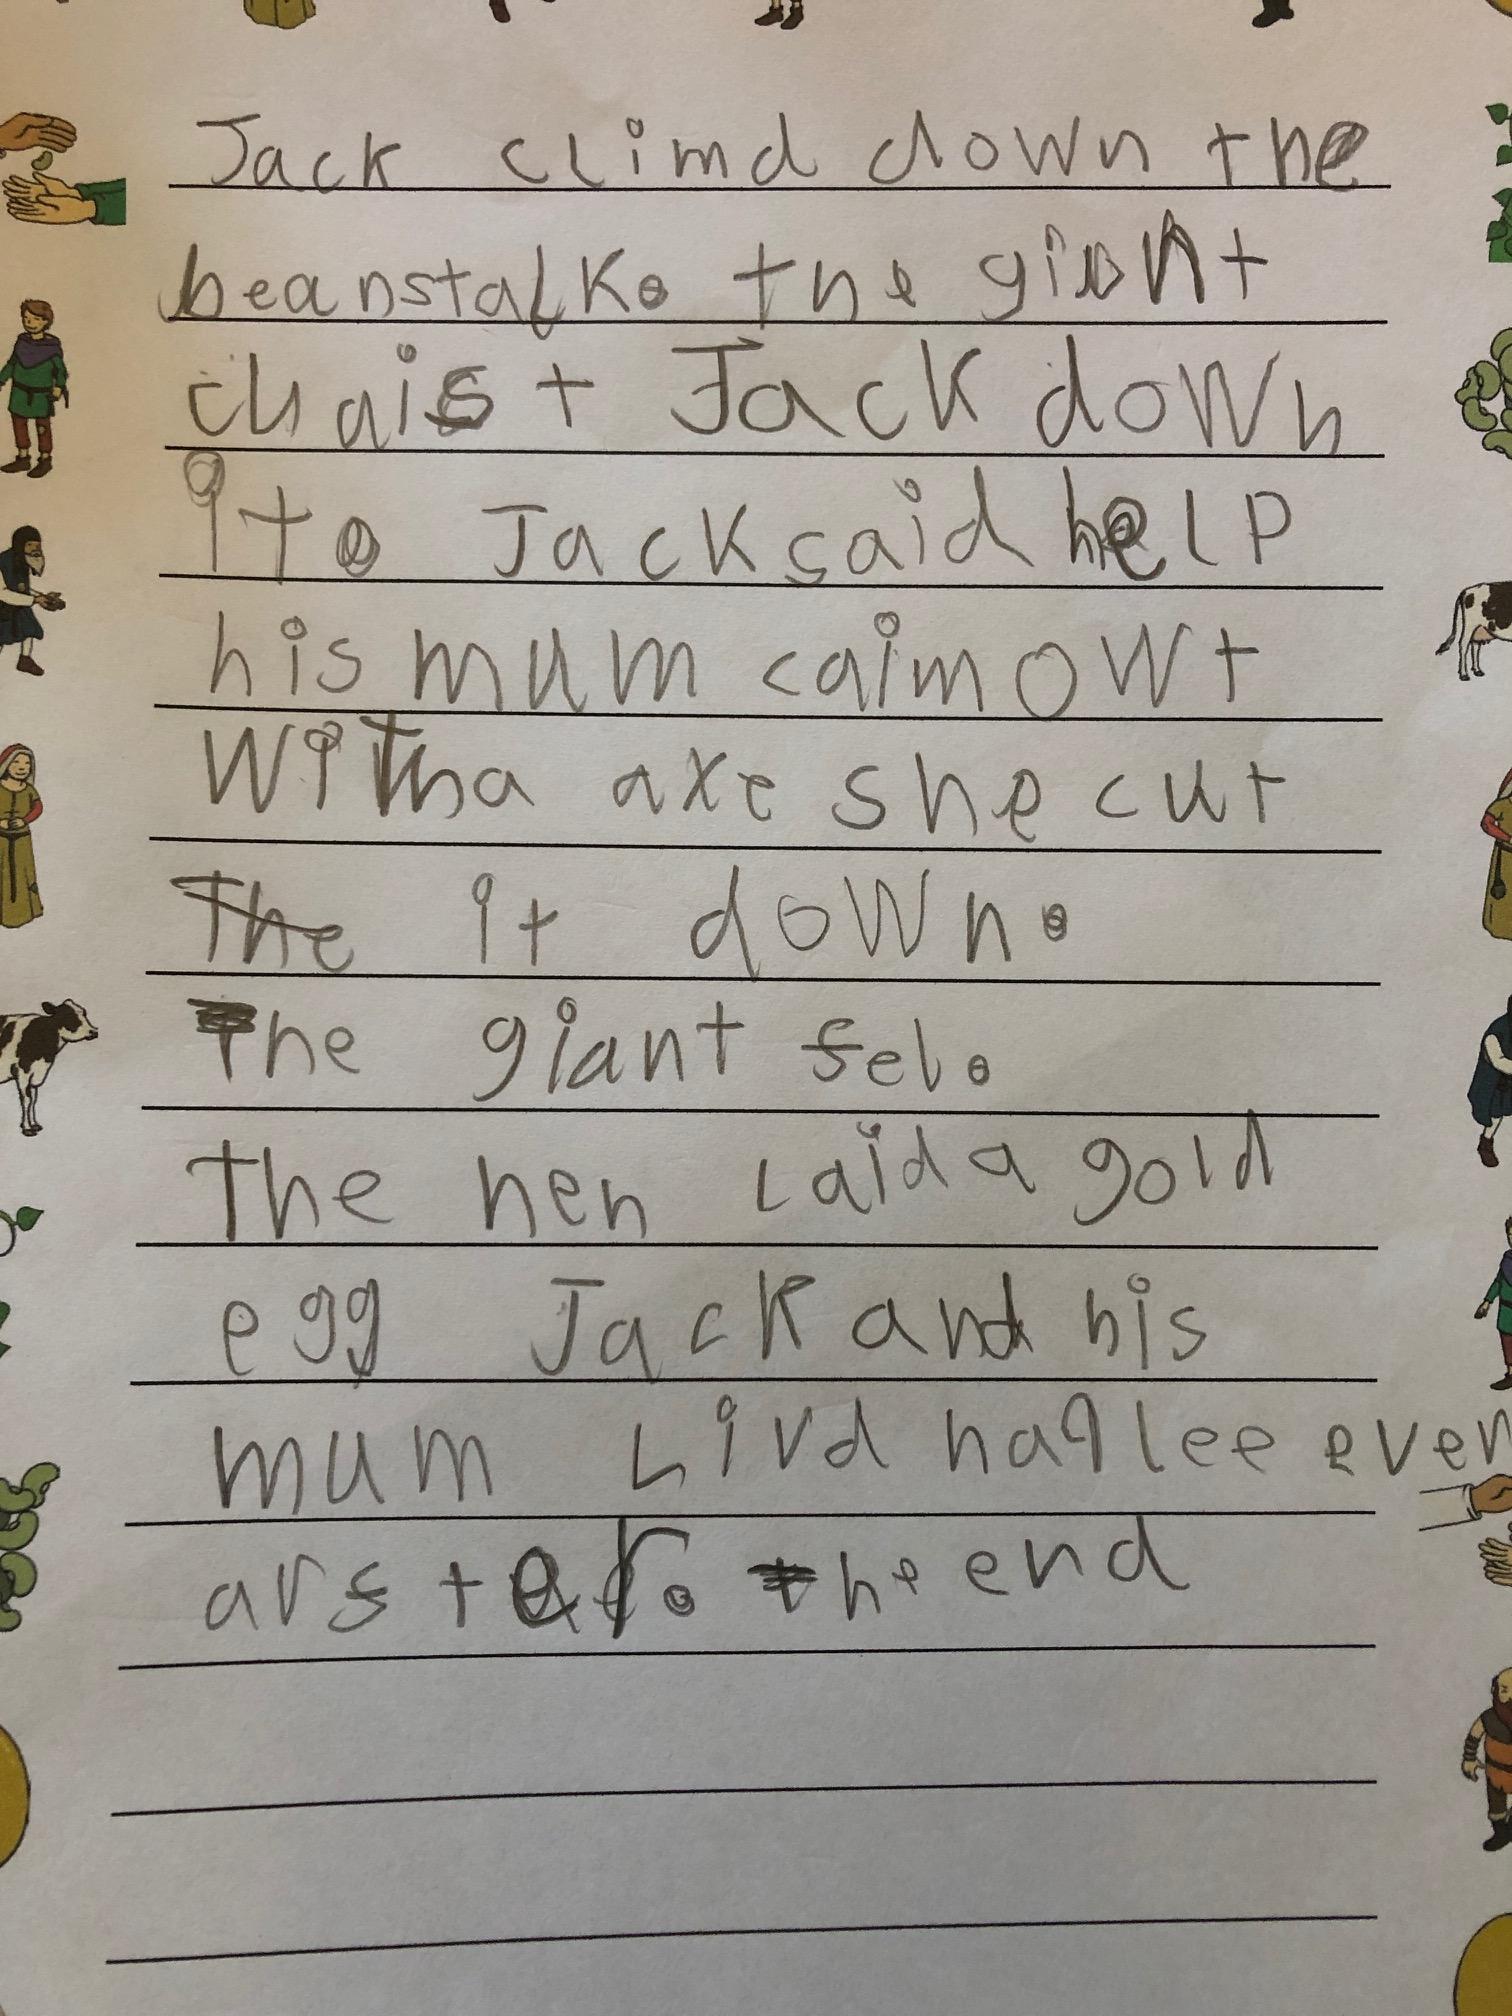 Jack climd down the
beanstalk. the giant
chaist Jack down
it. Jack said help
his mum caim owt
with a axe she cut
The it down.
The giant fel.
the hen laid a gold
egg Jack and his
mum Livd haplee ever
arfter. the end